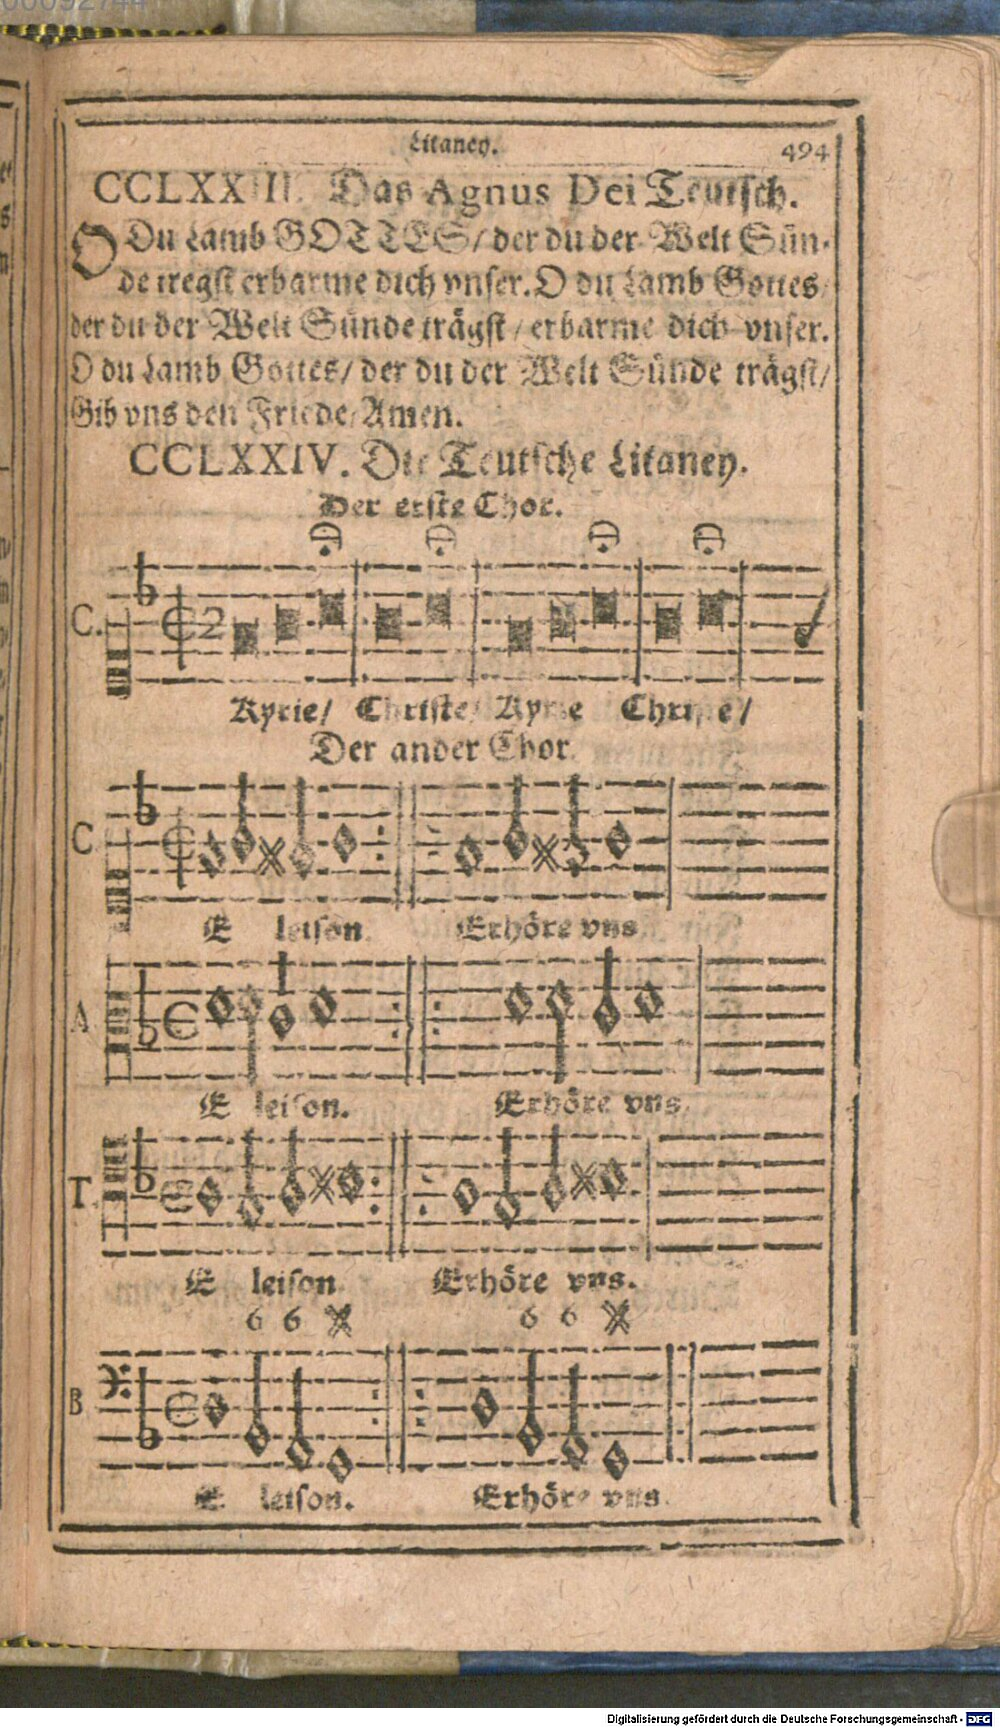 00092744
Litaney.
494
CCLXXIII. Das Agnus Dei Teutsch.
O Du Lamb GOTTES/ der du der Welt Sün-
de tregst erbarme dich vnser. O du Lamb Gottes/
der du der Welt Sünde trägst/ erbarme dich vnser.
O du Lamb Gottes/ der du der Welt Sünde trägst/
Gib vns den Friede/ Amen.
CCLXXIV. Die Teutsche Litaney.
Der erste Chor.
C.
2
Kyrie/ Christe/ Kyrie Christe/
Der ander Chor.
C
E leison. Erhöre vns
A
E leison. Erhöre vns.
T.
E leison Erhöre vns.
6 6 6 6
B
E leison. Erhöre vns.
Digitalisierung gefördert durch die Deutsche Forschungsgemeinschaft - DFG